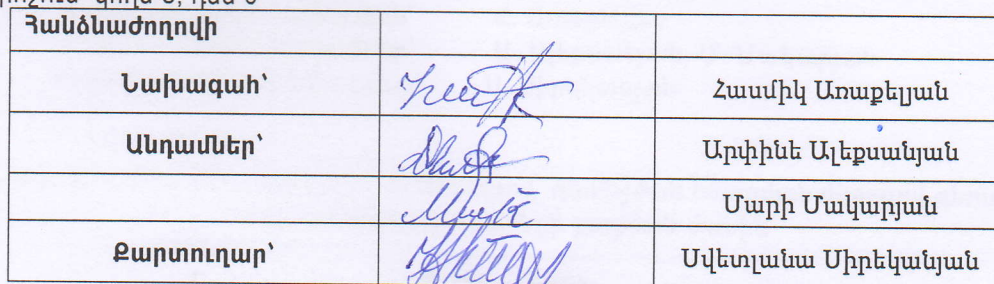 Հանձնաժողովի
Նախագահ՝ Հասմիկ Առաքելյան
Անդամներ՝ Արփինե Ալեքսանյան
Մարի Մակարյան
Քարտուղար՝ Սվետլանա Սիրեկանյան